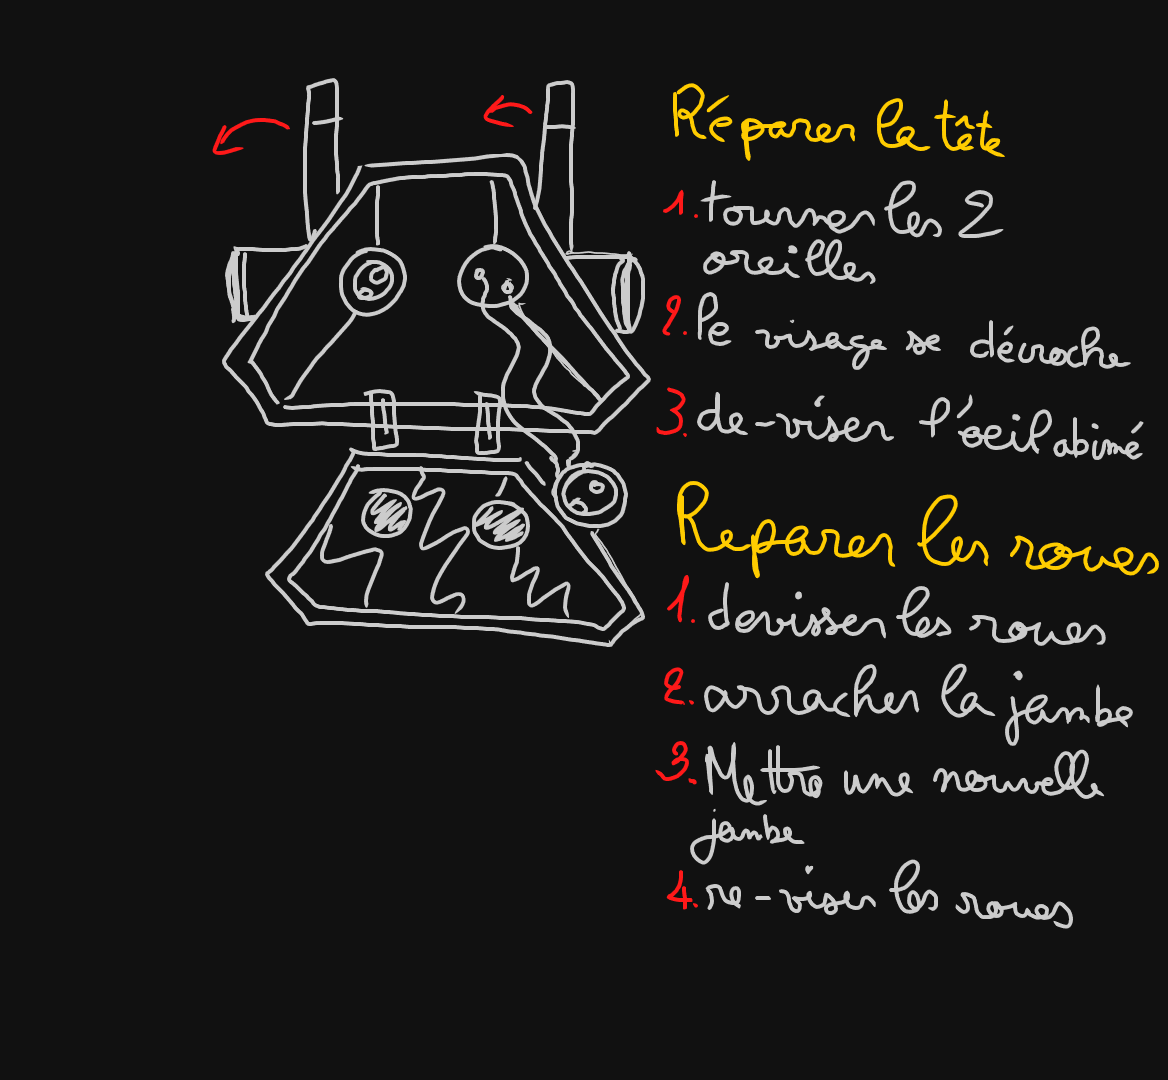 Réparer la tête
1. tourner les 2
oreilles
2. le visage se décroche
3. de-viser l'oeil abimé
Reparer les roues
1. devisser les roues
2. arracher la jambe
3. Mettre une nouvelle
jambe
4. re-viser les roues